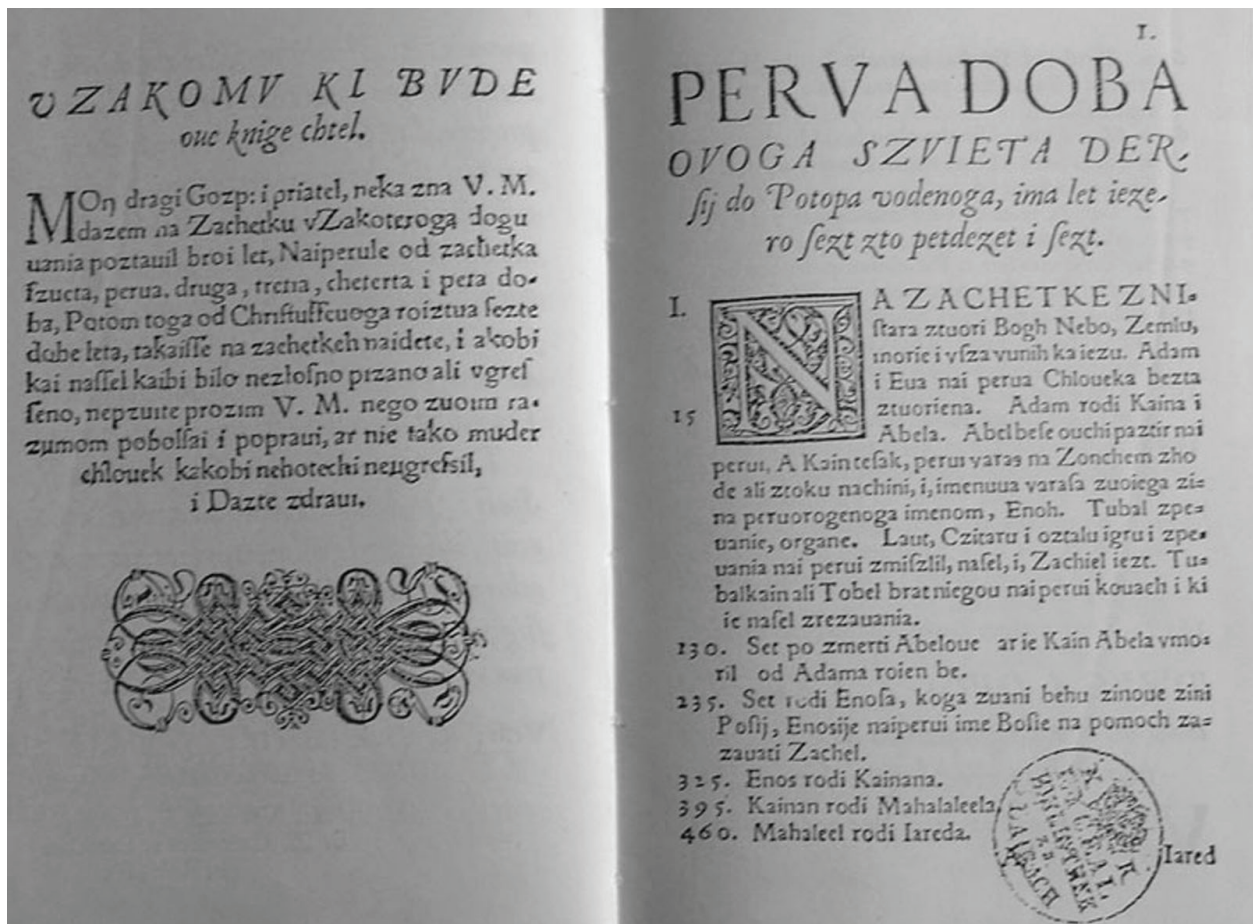 VZAKOMV KI BVDE
ove knige chtel.
MOn dragi Gozp: i priatel, neka zna V. M.
dazem na Zachetku vZakoteroga dogu
uania poztauil broi let, Naiperule od zachetka
ſzueta, perua. druga, tretia, cheterta i peta do-
ba, Potom toga od Chriſtuſſcuoga roiztua ſezte
dobe leta, takaiſſe na zachetkeh naidete, i akobi
kai naſſel kaibi bilo nezloſno pizano ali vgreſ
ſeno, nepzuite prozim V. M. nego zuoim ra-
zumom pobolſai i popraui, ar nie tako muder
chlouek kakobi nehotechi neugreſsil,
i Dazte zdraui.
I.
PERVA DOBA
OVOGA SZVIETA DER-
ſij do Potopa vodenoga, ima let ieze-
ro ſezt zto petdezet i ſezt.
I. NA ZACHETKE ZNI-
ſtara ztuori Bogh Nebo, Zemlu,
morie i vſza vunih ka iezu. Adam
i Eua nai perua Chloueka bezta
15 ztuoriena. Adam rodi Kaina i
Abela. Abel beſe ouchi paztir nai
perui, A Kain teſak, perui varas na Zonchem zho
de ali ztoku nachini, i, imenuua varaſa zuoiega zi-
na peruorogenoga imenom, Enoh. Tubal zpe-
uanie, organe. Laut, Czitaru i oztalu igru i zpe-
uania nai perui zmiſzlil, naſel, i, Zachiel iezt. Tu-
balkain ali Tobel brat niegou nai perui kouach i ki
ie naſel zrezauania.
130. Set po zmerti Abeloue ar ie Kain Abela vmo-
ril od Adama roien be.
235. Set rodi Enoſa, koga zuani behu zinoue zini
Poſij, Enosije naiperui ime Boſie na pomoch za-
zauati Zachel.
325. Enos rodi Kainana.
395. Kainan rodi Mahalaleela.
460. Mahaleel rodi Iareda.
Iared
LAIBACH